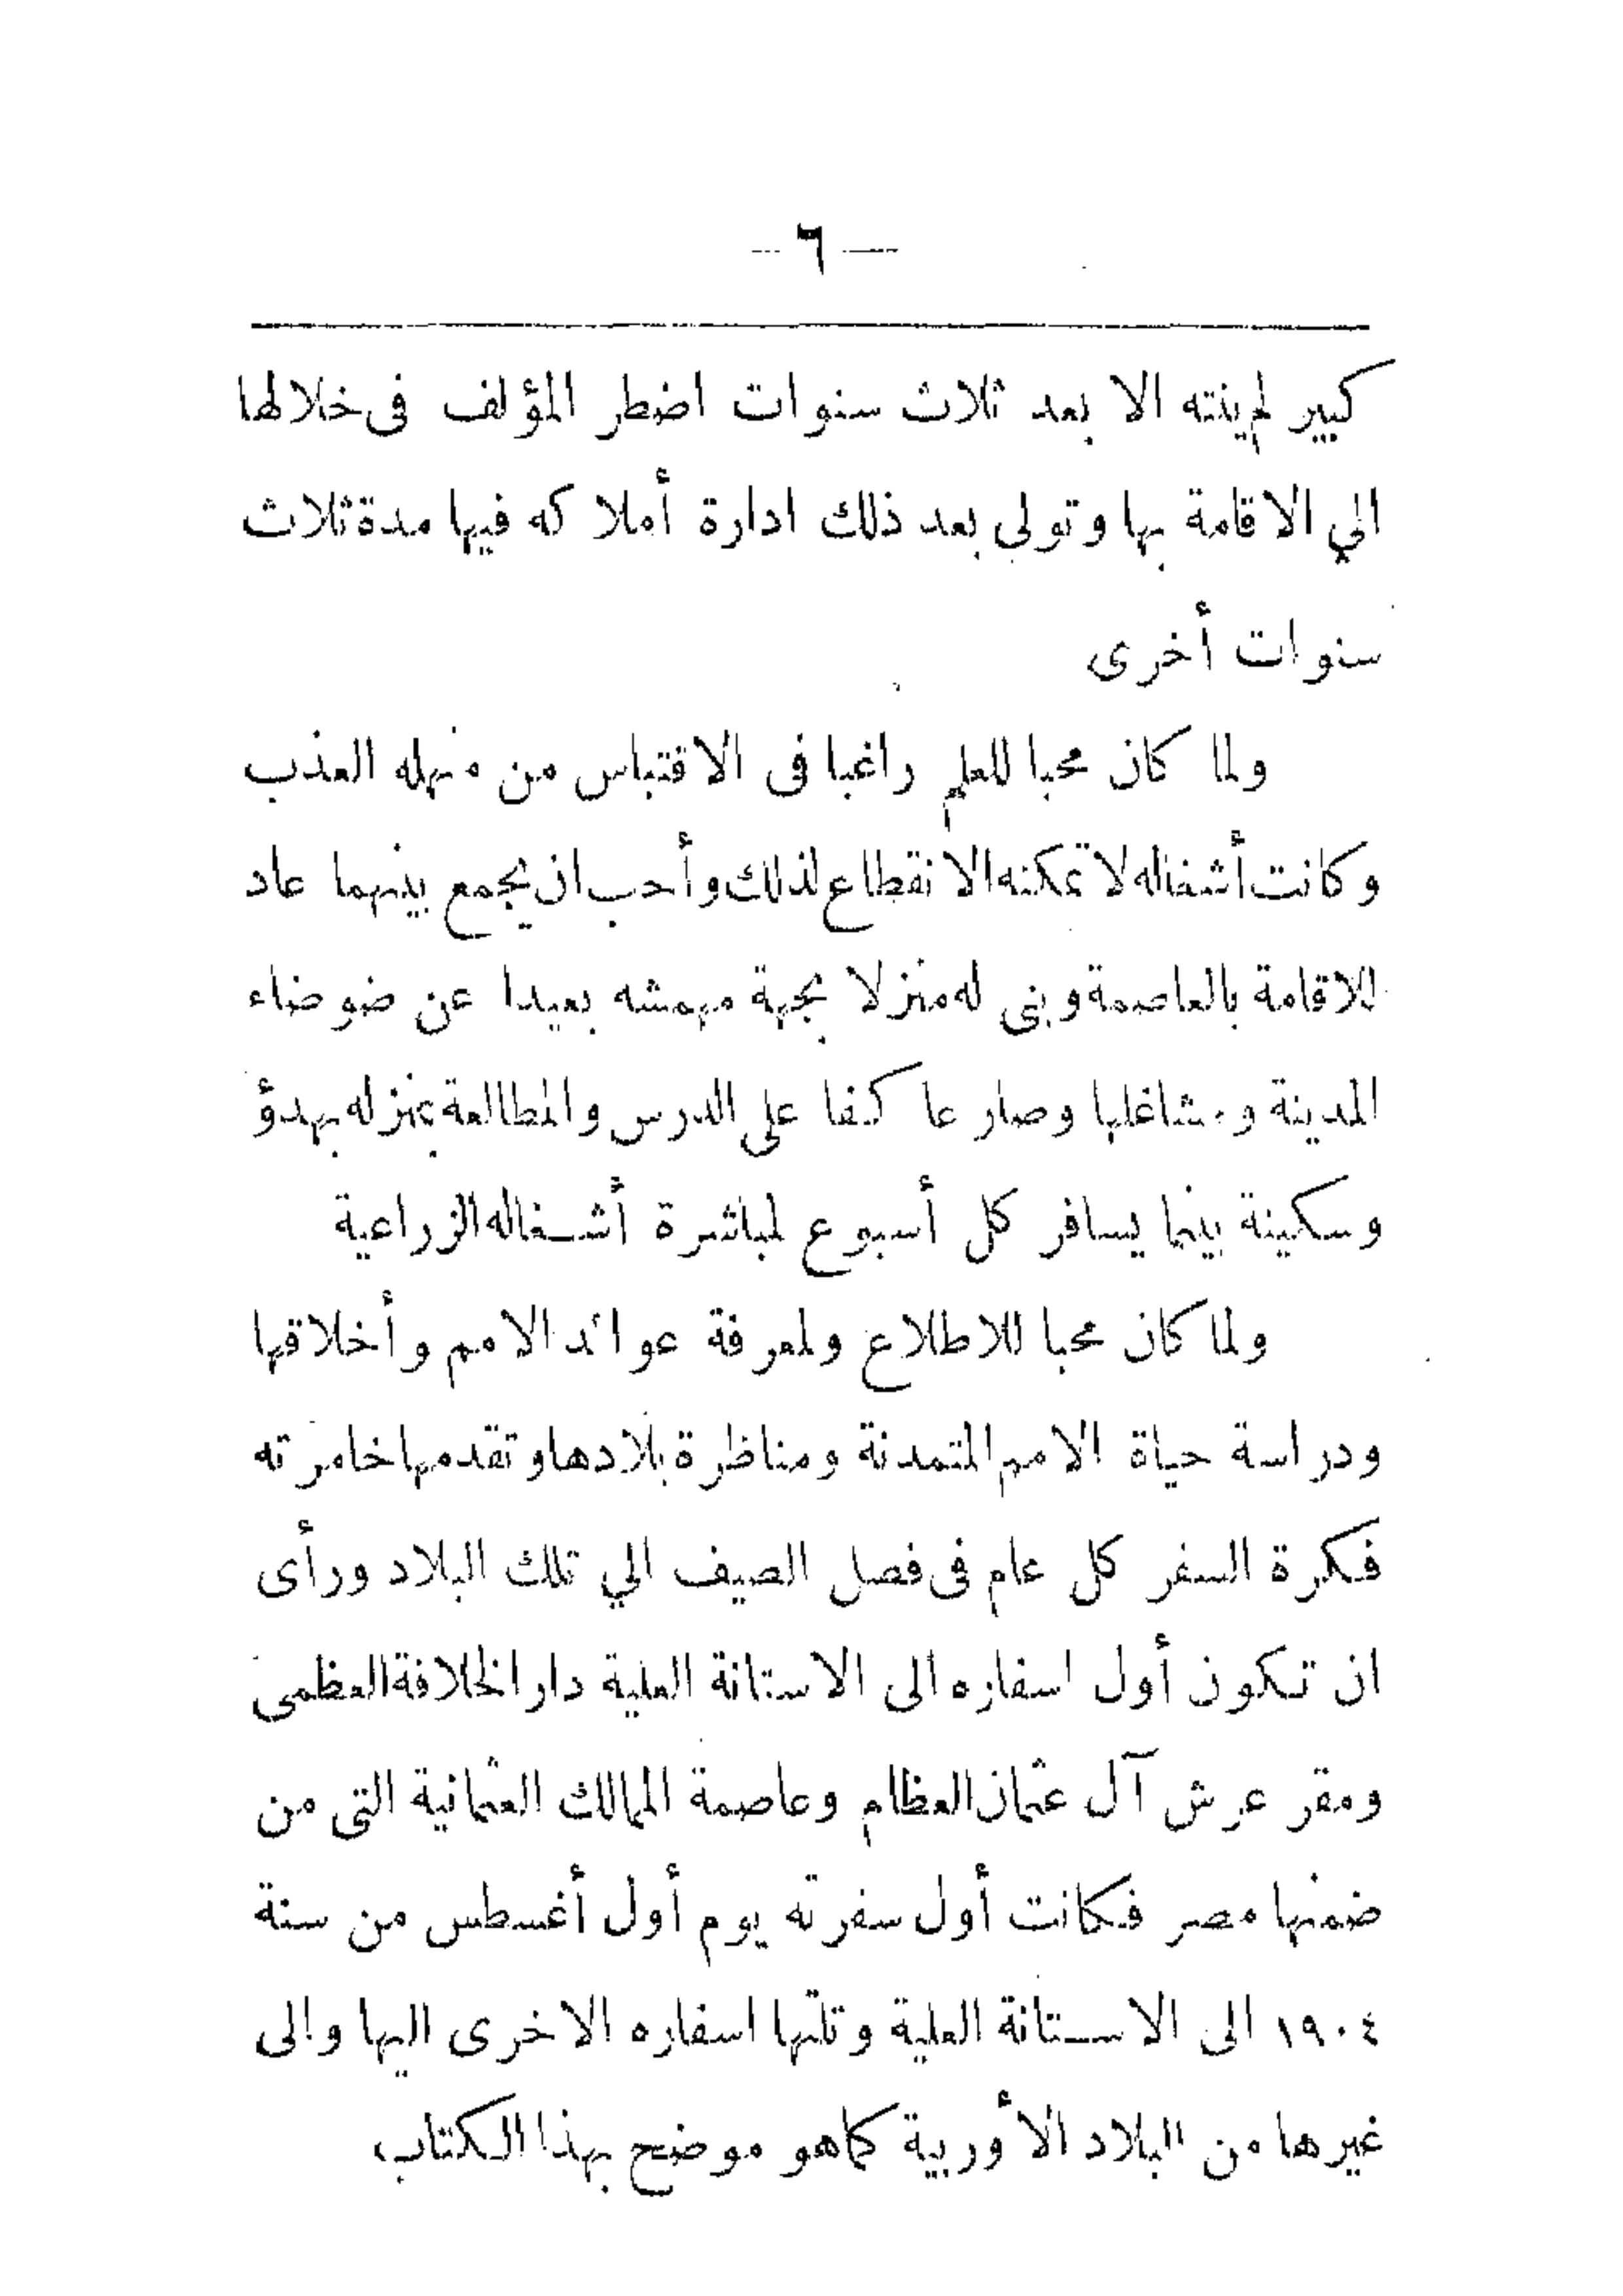 — ٦ —
كبير لم ينته الا بعد ثلاث سنوات اضطر المؤلف فى خلالها
الي الاقامة بها وتولى بعد ذلك ادارة أملاكه فيها مدة ثلاث
سنوات أخرى
ولما كان محبا للعلم راغبا فى الاقتباس من منهله العذب
وكانت أشغاله لا تمكنه الانقطاع لذلك وأحب ان يجمع بينهما عاد
للاقامة بالعاصمة وبنى له منزلا بجهة مهمشه بعيدا عن ضوضاء
المدينة ومشاغلها وصار عاكفا على الدرس والمطالعة بمنزله بهدؤ
وسكينة بينما يسافر كل أسبوع لمباشرة أشغاله الزراعية
ولما كان محبا للاطلاع ولمعرفة عوائد الامم وأخلاقها
ودراسة حياة الامم المتمدنة ومناظرة بلادها وتقدمها خامرته
فكرة السفر كل عام فى فصل الصيف الي تلك البلاد ورأى
ان تكون أول اسفاره الى الاستانة العلية دار الخلافة العظمى
ومقر عرش آل عثمان العظام وعاصمة الممالك العثمانية التى من
ضمنها مصر فكانت أول سفرته يوم أول أغسطس من سنة
١٩٠٤ الى الاستانة العلية وتلتها اسفاره الاخرى اليها والى
غيرها من البلاد الأوربية كما هو موضح بهذا الكتاب